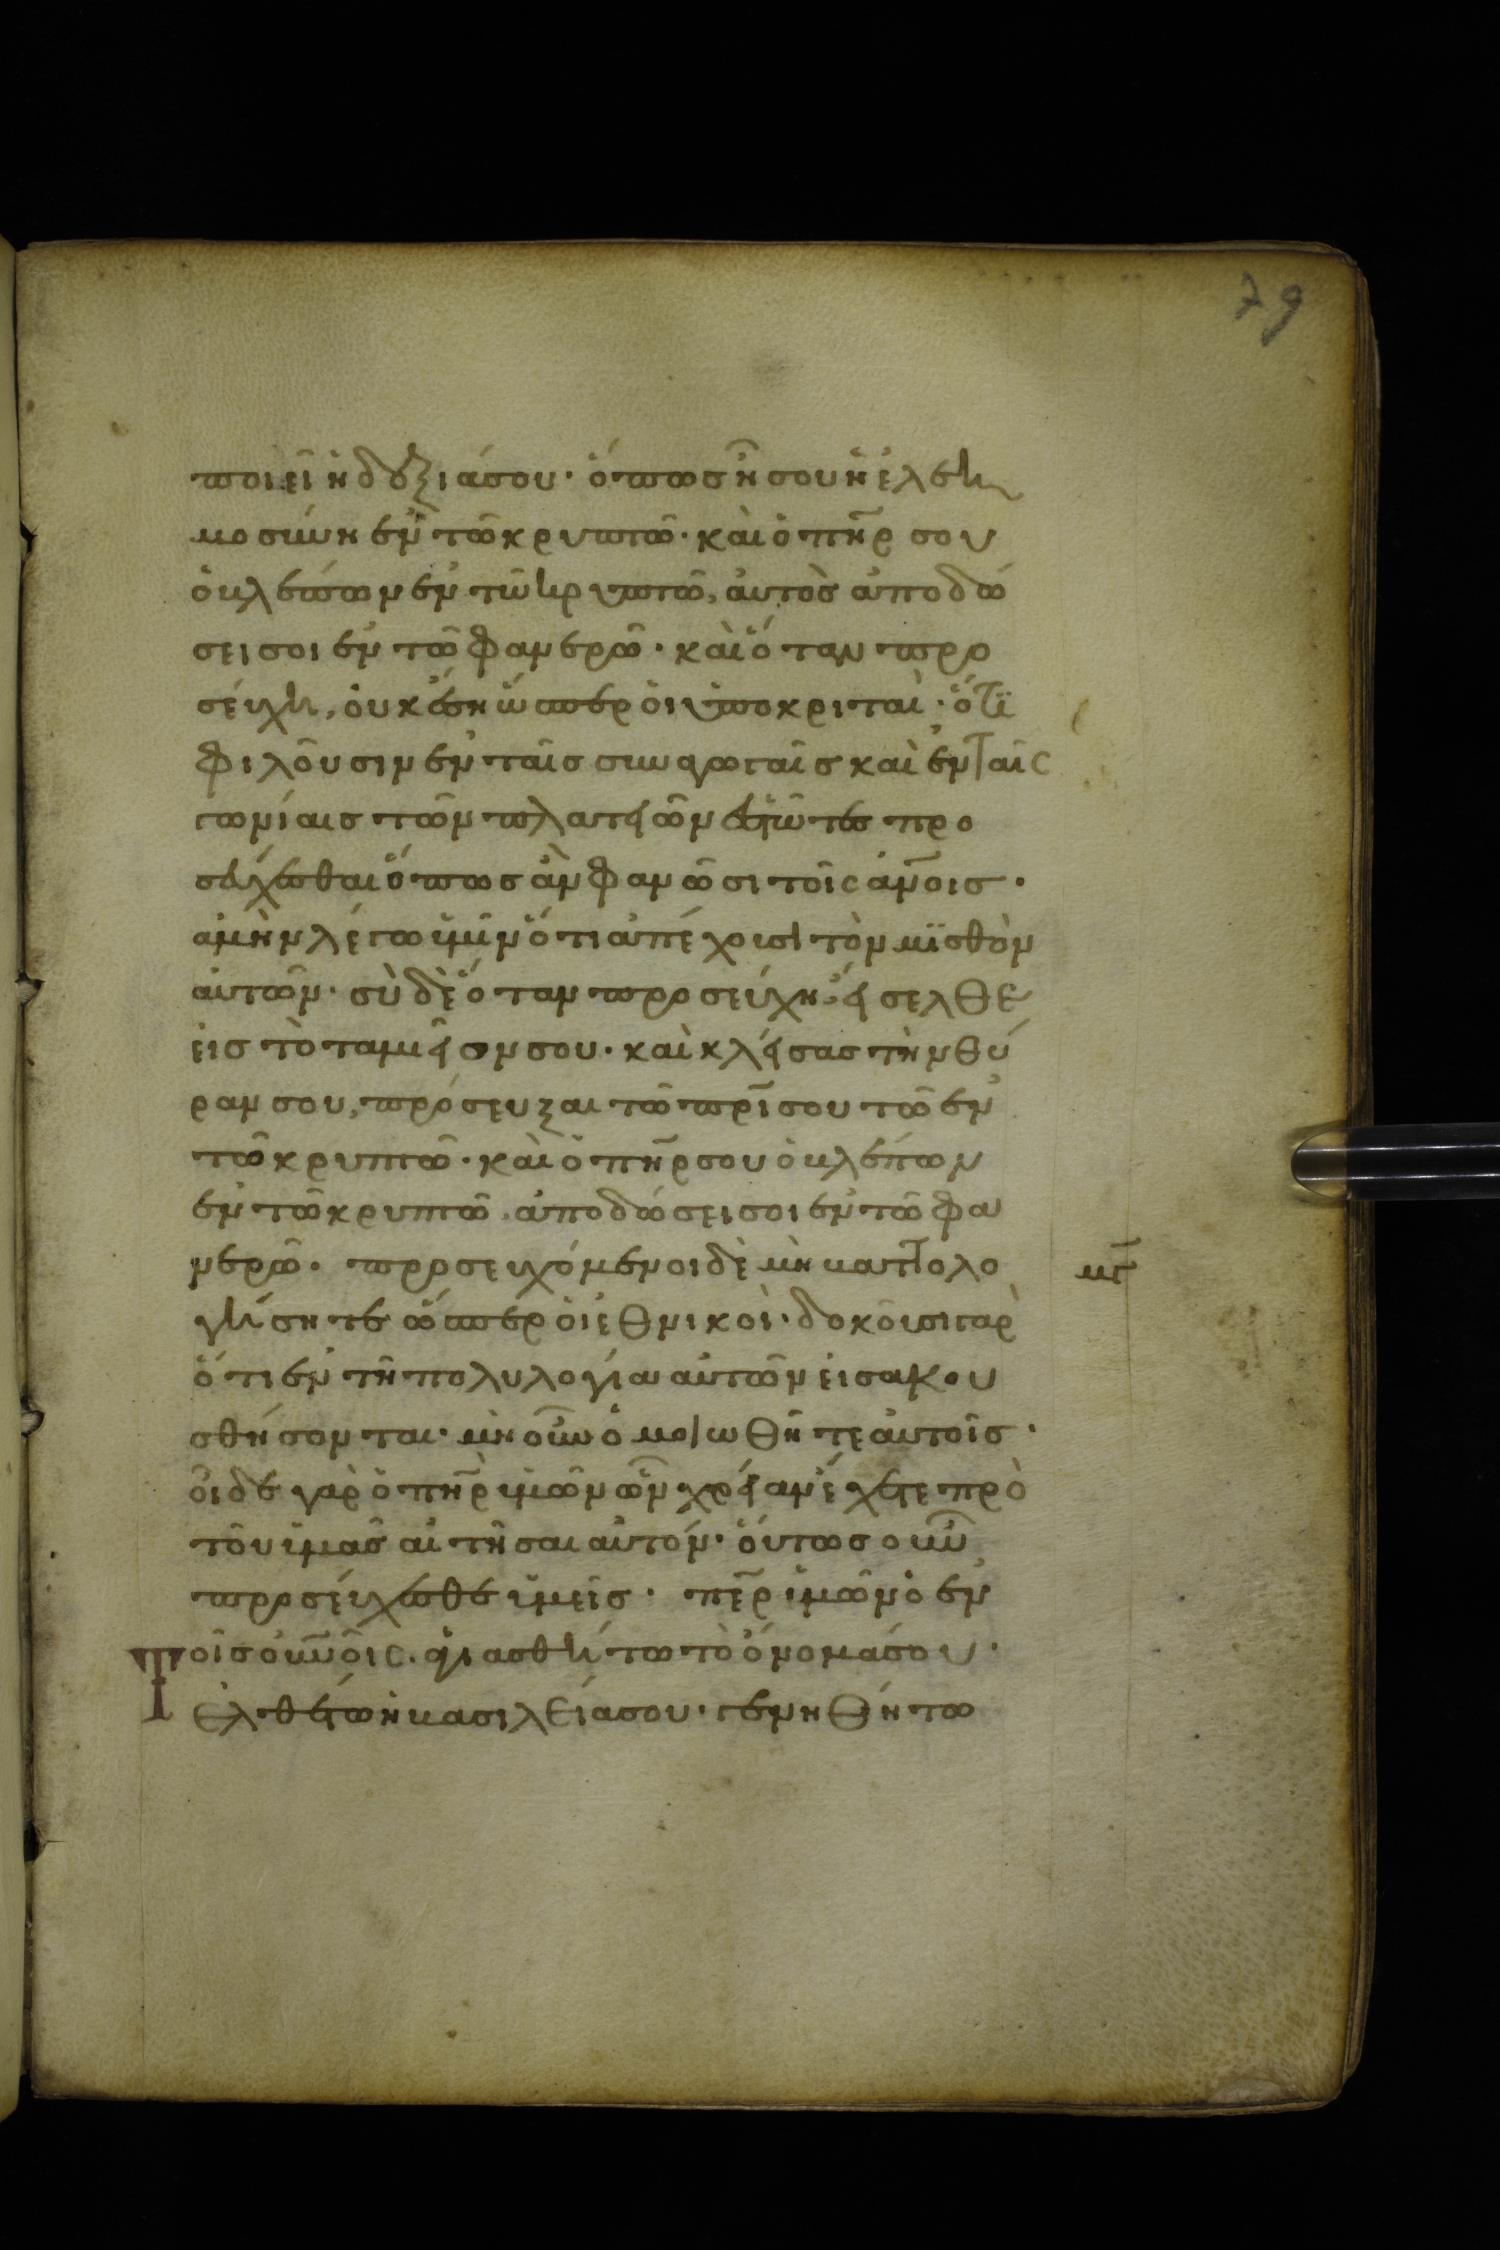 79
ποιεῖ ἡ δεξιά σου· ὅπως ᾖ σου ἡ ἐλεη
μοσύνη ἐν τῶ κρυπτῶ· καὶ ὁ πη̅ρ σου
ὁ βλέπων ἐν τῶ κρυπτῶ, ἀυτὸς ἀποδώ
σει σοι ἐν τῶ φανερῶ· καὶ ὅταν προ
σέυχη, ὀυκ ἔση ὥσπερ ὁι ὑποκριταὶ· ὅτϊ
φιλοῦσιν ἐν ταῖς συναγωγαῖς καὶ ἐν ταῖς
γωνίαις τῶν πλατειῶν ἑστῶτες προ
σεύχεσθαι ὅπως ἂν φανῶσι τοῖς ἀν̅οις·
ἀμὴν λέγω ὑμῖν ὅτι ἀπέχουσι τὸν μϊσθὸν
ἀυτῶν· σὺ δὲ ὅταν προσεύχη, εἴσελθε
ἐις τὸ ταμιεῖον σου· καὶ κλείσας τὴν θύ
ραν σου, πρόσευξαι τῶ πρ̅ι σου τῶ ἐν
τῶ κρυπτῶ· καὶ ὁ πη̅ρ σου ὁ βλέπων
ἐν τῶ κρυπτῶ, ἀποδώσει σοι ἐν τῶ φα
νερῶ· προσευχόμενοι δὲ μὴ βαττολο
γήσητε ὥσπερ ὁι ἐθνικοὶ· δοκοῦσι γὰρ
ὅτι ἐν τῆ πολυλογία ἀυτῶν ἐισακου
σθήσονται· μὴ οὖν ὁμοιωθῆτε ἀυτοῖς·
ὀιδε γὰρ ὁ πη̅ρ ὑμῶν ὧν χρείαν ἔχετε πρὸ
τοῦ ὑμᾶς ἀιτῆσαι ἀυτόν· ὅυτως οὖν
προσέυχεσθε ὑμεῖς· πε̅ρ ἡμῶν ὁ ἐν
τοῖς οὐν̅οῖς· ἁγιασθήτω τὸ ὄνομά σου·
ἐλθέτω ἡ βασιλεία σου· γενηθήτω